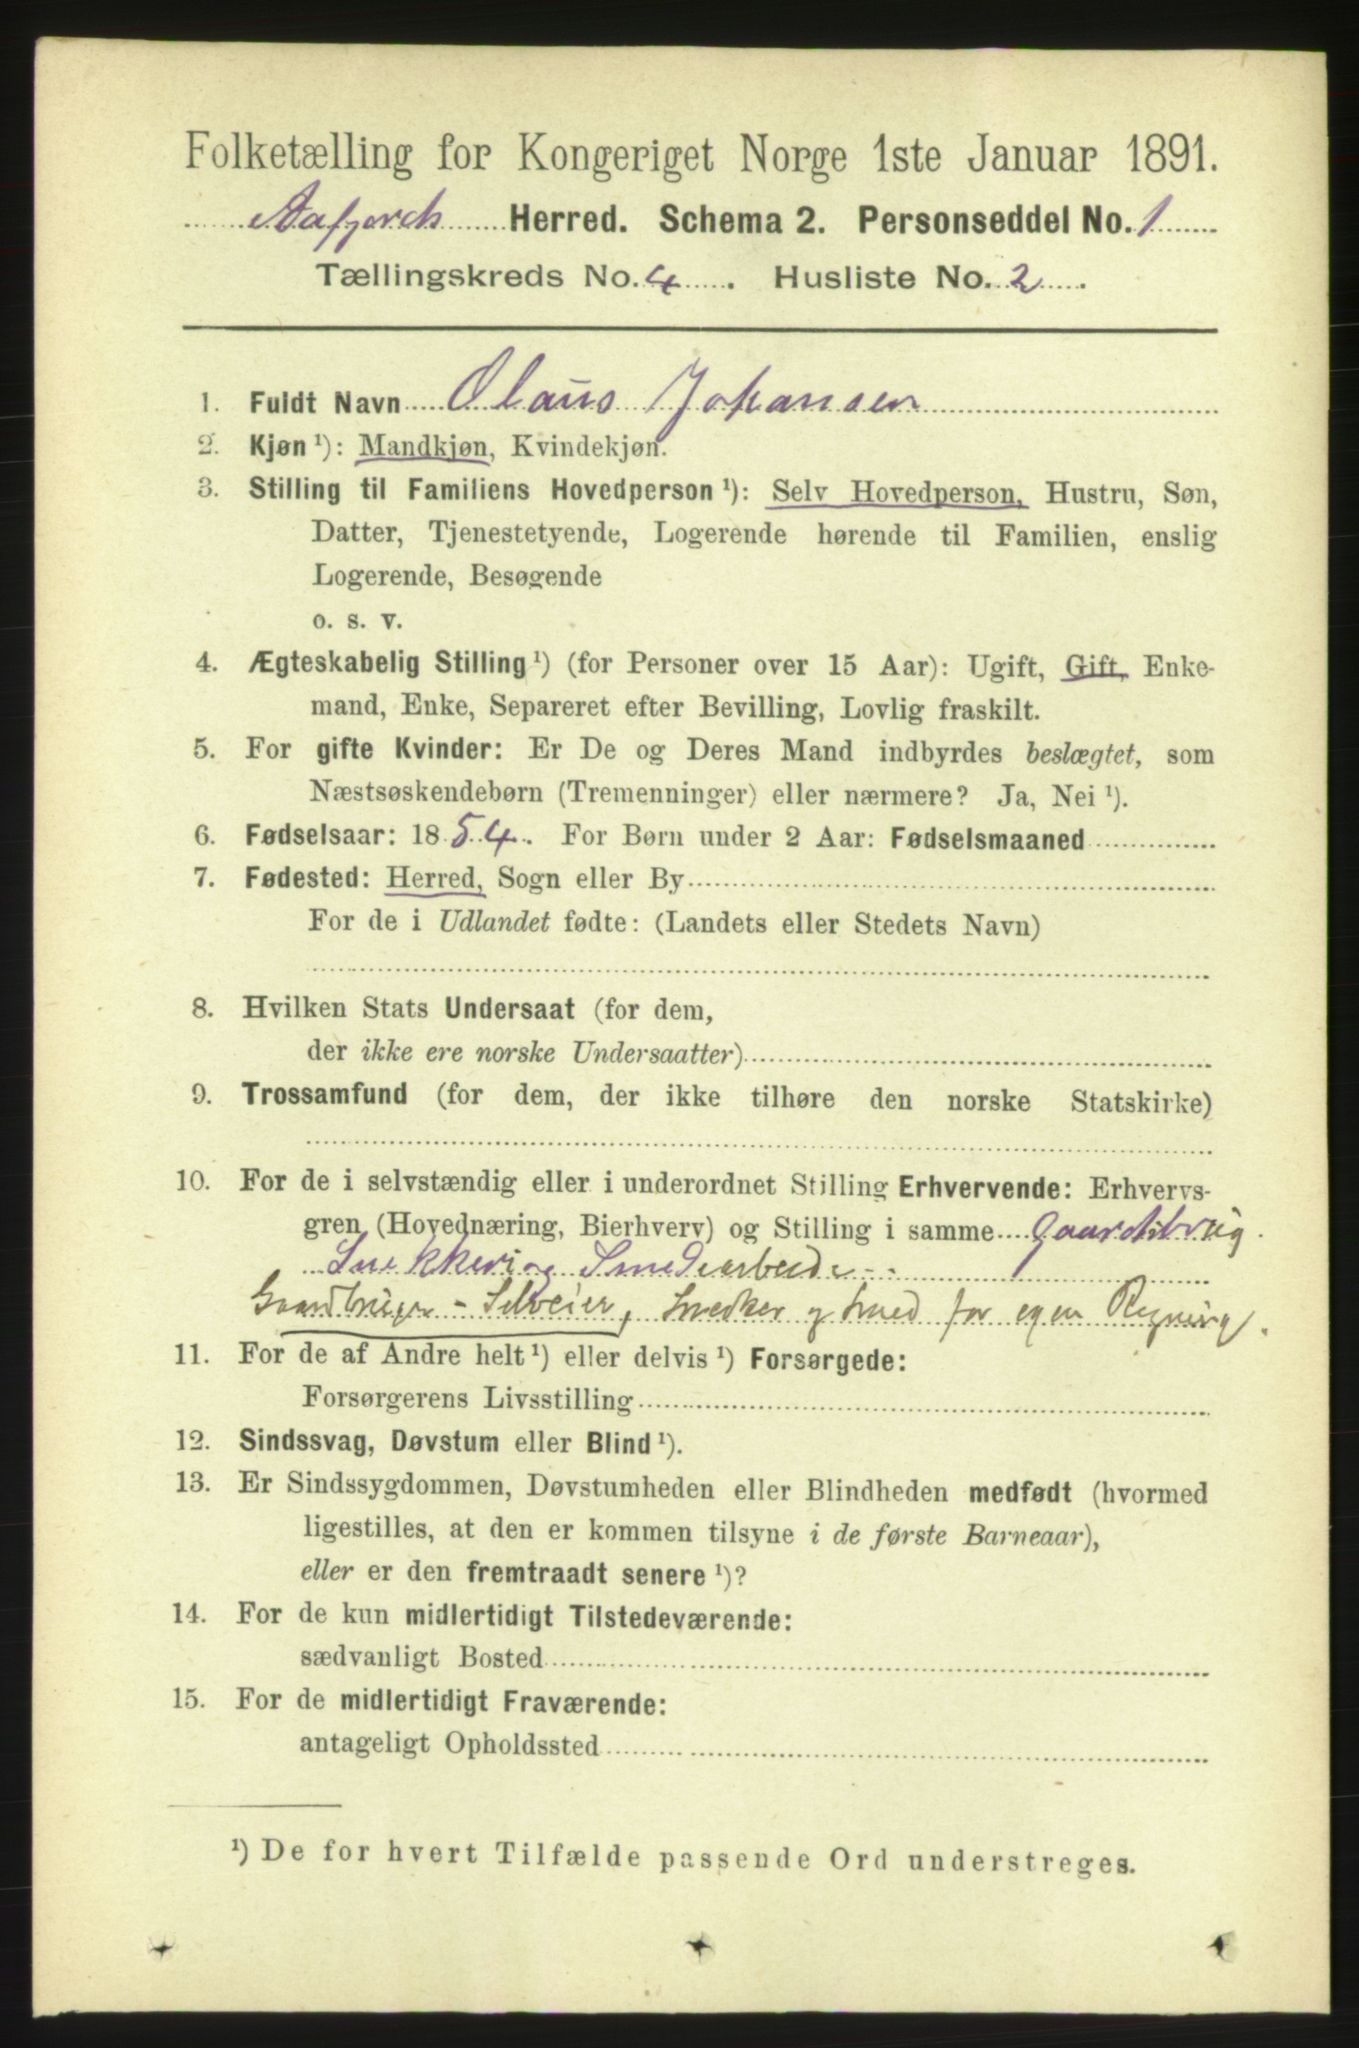 Folketælling for Kongeriget Norge 1ste Januar 1891.
Aafjord Herred. Schema 2. Personseddel No. 1
Tællingskreds No. 4. Husliste No. 2.
1. Fuldt Navn Olaus Johansen
2. Kjøn ¹): Mandkjøn, Kvindekjøn.
3. Stilling til Familiens Hovedperson ¹): Selv Hovedperson, Hustru, Søn,
Datter, Tjenestetyende, Logerende hørende til Familien, enslig
Logerende, Besøgende
o. s. v.
4. Ægteskabelig Stilling ¹) (for Personer over 15 Aar): Ugift, Gift, Enke-
mand, Enke, Separeret efter Bevilling, Lovlig fraskilt.
5. For gifte Kvinder: Er De og Deres Mand indbyrdes beslægtet, som
Næstsøskendebørn (Tremenninger) eller nærmere? Ja, Nei ¹).
6. Fødselsaar: 1854. For Børn under 2 Aar: Fødselsmaaned
7. Fødested: Herred, Sogn eller By
For de i Udlandet fødte: (Landets eller Stedets Navn)
8. Hvilken Stats Undersaat (for dem,
der ikke ere norske Undersaatter)
9. Trossamfund (for dem, der ikke tilhøre den norske Statskirke)
10. For de i selvstændig eller i underordnet Stilling Erhvervende: Erhvervs-
gren (Hovednæring, Bierhverv) og Stilling i samme Gaardsbrug
Snekker og Smedarbeide
Gaardbruger - Selveier, Snedker og Smed for egen Regning.
11. For de af Andre helt ¹) eller delvis ¹) Forsørgede:
Forsørgerens Livsstilling
12. Sindssvag, Døvstum eller Blind ¹).
13. Er Sindssygdommen, Døvstumheden eller Blindheden medfødt (hvormed
ligestilles, at den er kommen tilsyne i de første Barneaar),
eller er den fremtraadt senere ¹)?
14. For de kun midlertidigt Tilstedeværende:
sædvanligt Bosted
15. For de midlertidigt Fraværende:
antageligt Opholdssted
¹) De for hvert Tilfælde passende Ord understreges.